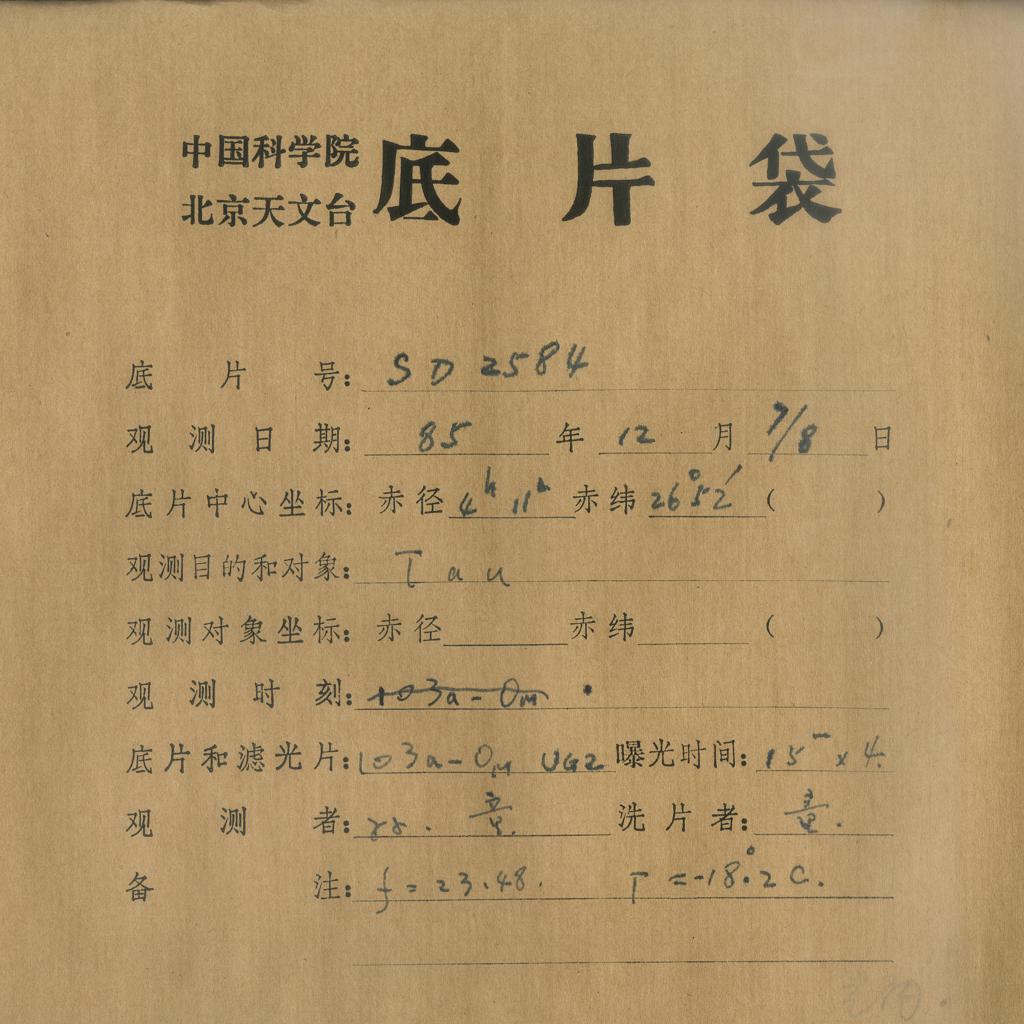 中国科学院
北京天文台
底片袋
底片号: SD 2584
观测日期: 85 年 12 月 7/8 日
底片中心坐标: 赤径 4h 11h 赤纬 26°52′ ( )
观测目的和对象: Tau
观测对象坐标: 赤径 赤纬 ( )
观测时刻: 103a-OM
底片和滤光片: 103a-OM UG2 曝光时间: 15m x 4.
观测者: 童. 洗片者: 童.
备注: f = 23.48. T = -18°.2 C.